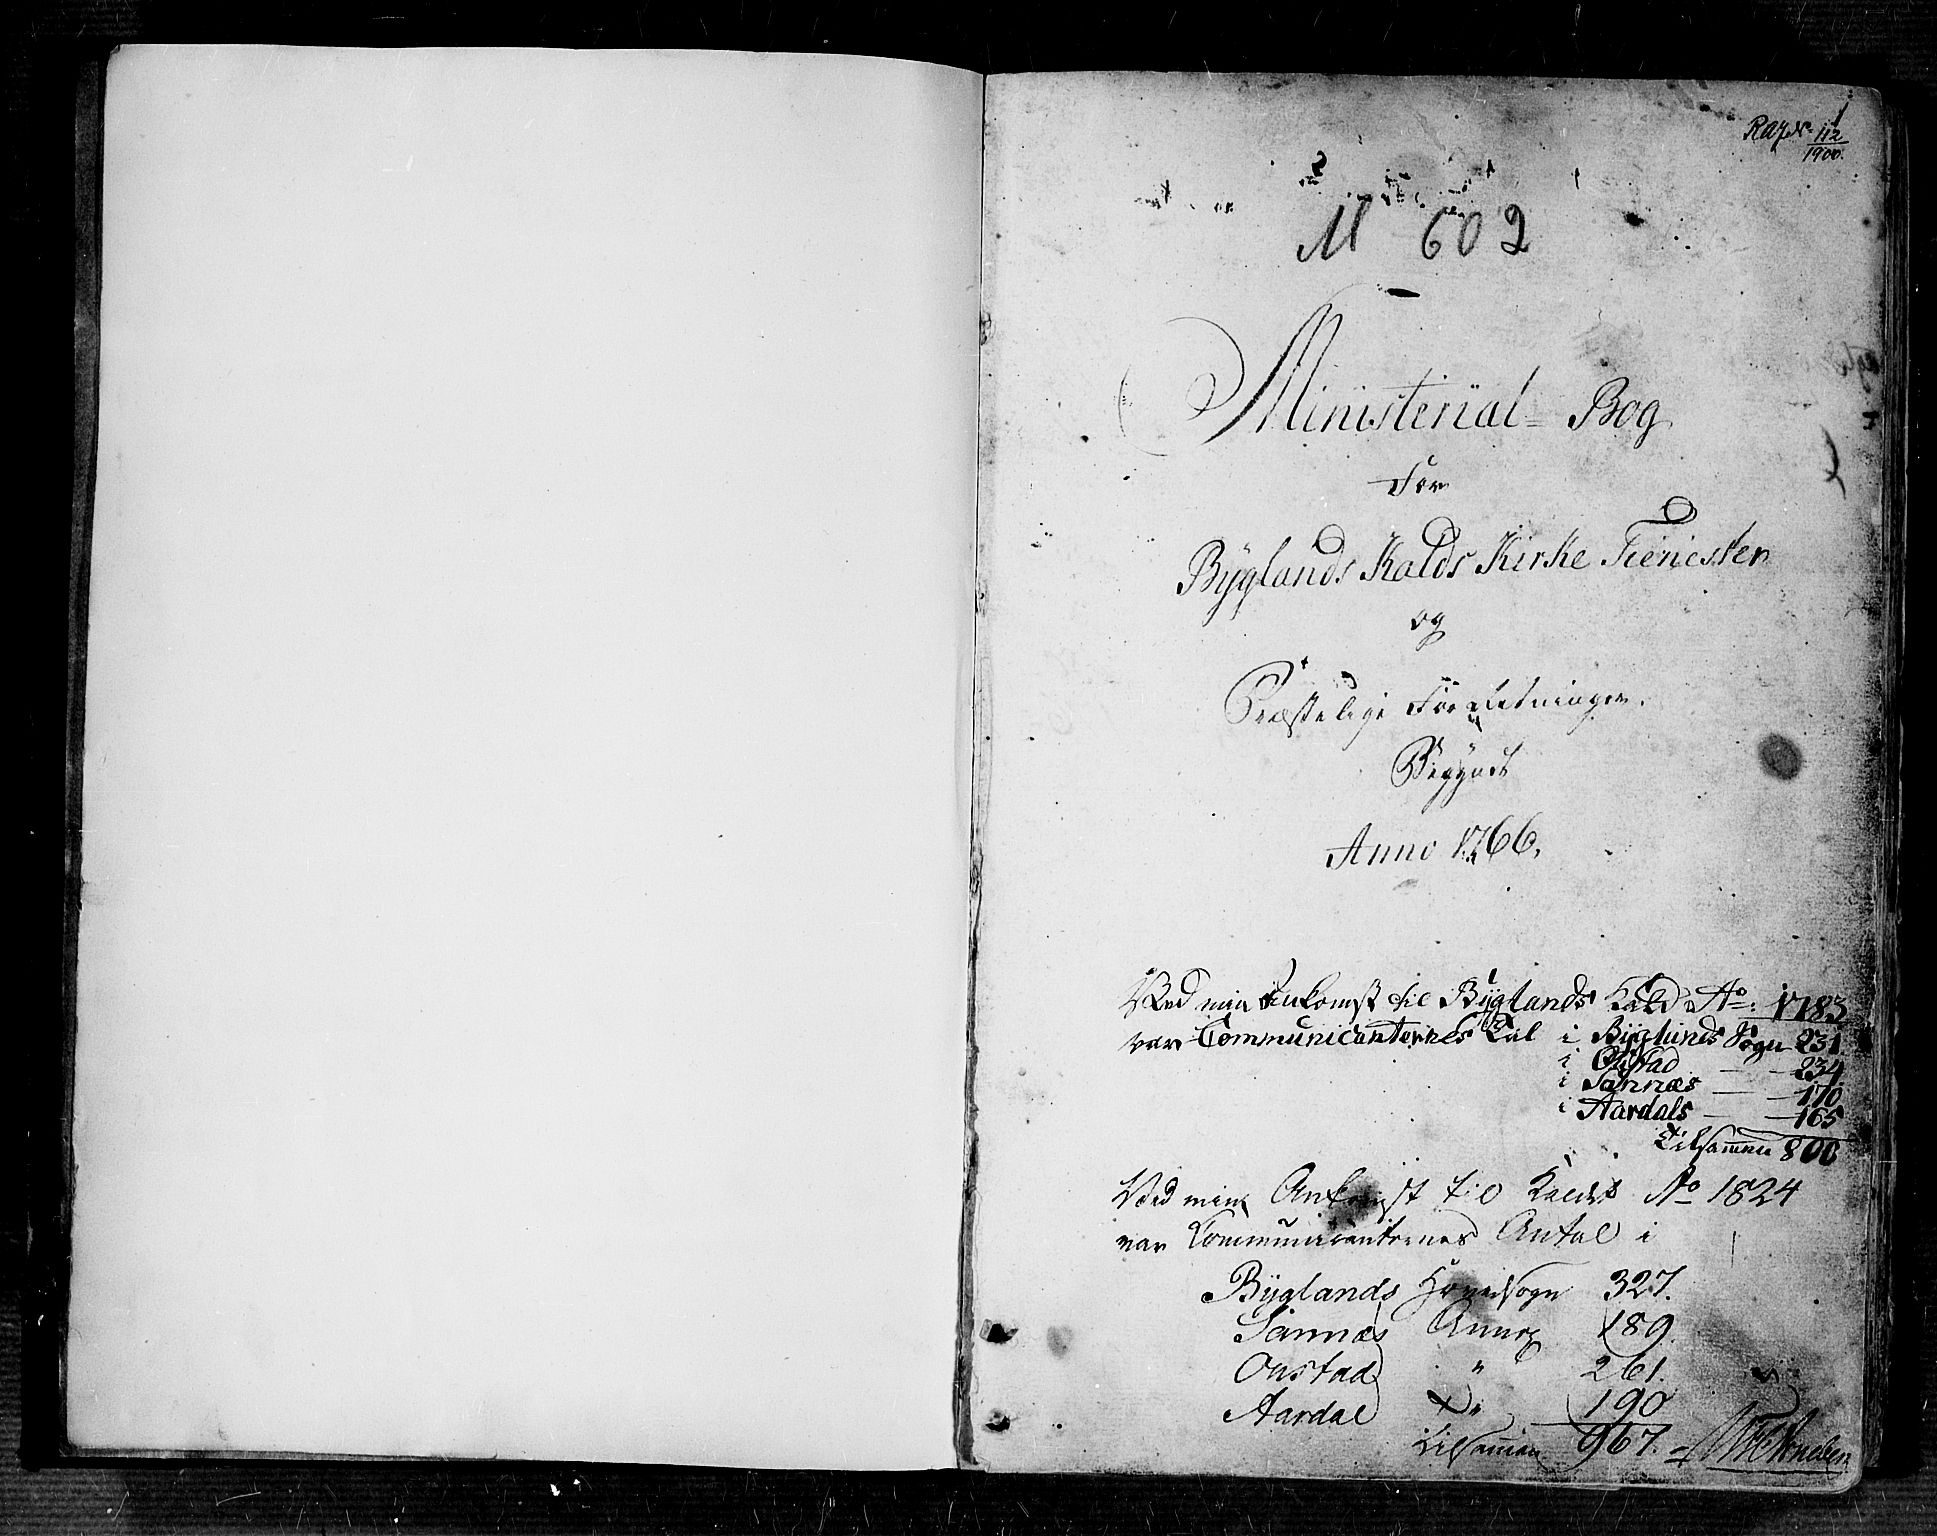 1
Rag No 112
1900.
M 602
Ministerial= Bog
For
Byglands Kalds Kirke Tienester
og
Præstelige Forretninger.
Begyndt
Anno 1766.
Ved min Ankomst til Byglands Kald Ao: 1783
var Communicanternes Tal i Byglands Sogn 231
i Oustad — 234
i Sannæs — 170
i Aardals — 165
Tilsammen 800
Ved min Ankomst til Kaldet Ao 1824
var Communicanternes Antal i
Byglands Hovedsogn 327.
Sannæs Annex 189.
Oustad " 261.
Aardal " 190
Tilsammen 967.